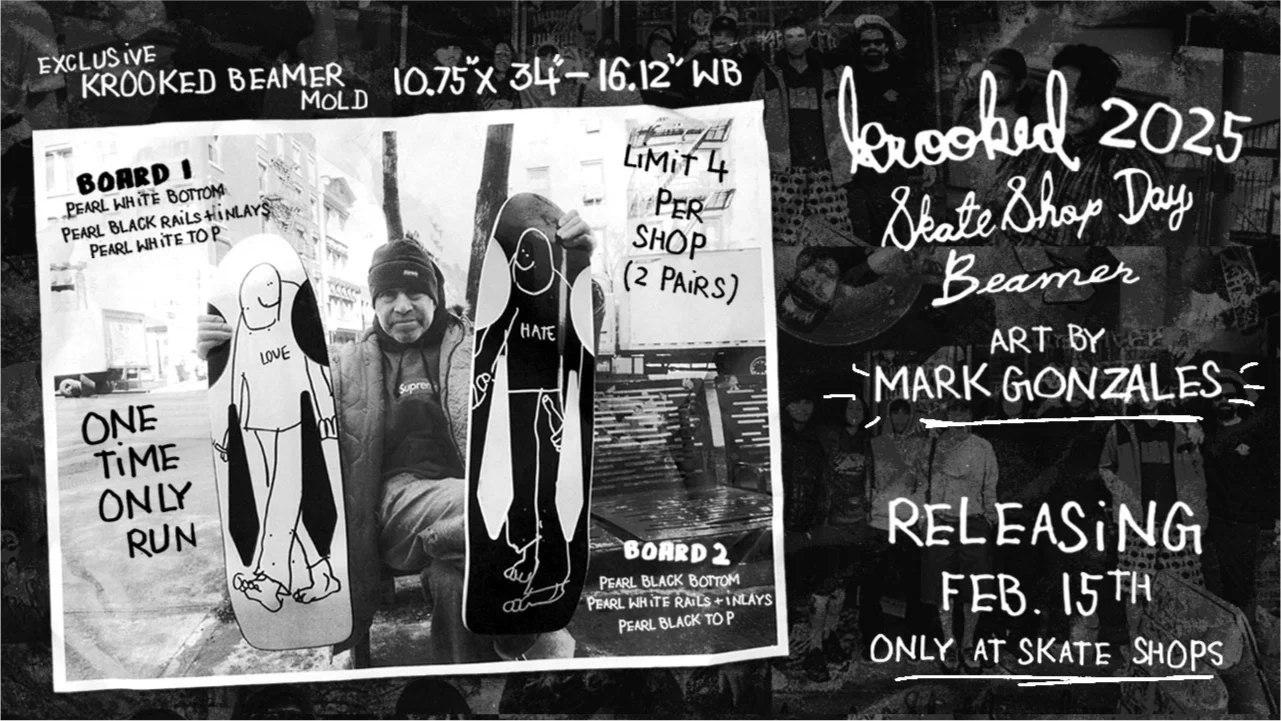 EXCLUSiVE
KROOKED BEAMER
MOLD
10.75"X 34"- 16.12" WB
BOARD 1
PEARL WHITE BOTTOM
PEARL BLACK RAiLS + iNLAYS
PEARL WHiTE TOP
LiMiT 4
PER
SHOP
(2 PAiRS)
LOVE
HATE
Supreme
ONE
TiME
ONLY
RUN
BOARD 2
PEARL BLACK BOTTOM
PEARL WHiTE RAiLS + iNLAYS
PEARL BLACK TOP
krooked 2025
Skate Shop Day
Beamer
ART BY
MARK GONZALES
RELEASiNG
FEB. 15TH
ONLY AT SKATE SHOPS